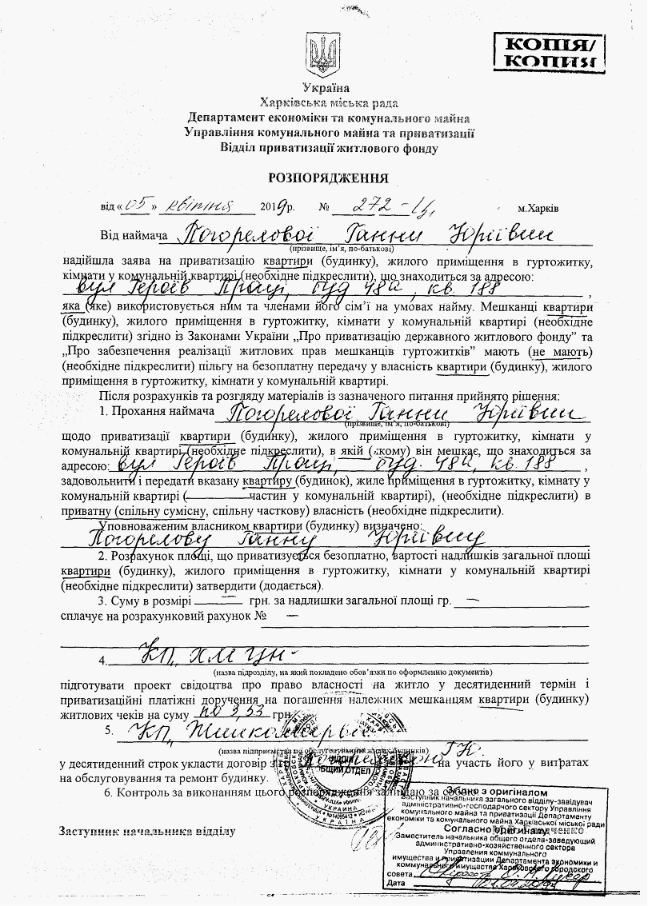 КОПІЯ/
КОПИЯ
Україна
Харківська міська рада
Департамент економіки та комунального майна
Управління комунального майна та приватизації
Відділ приватизації житлового фонду
РОЗПОРЯДЖЕННЯ
від «05» квітня 2019р. № 272-Ц, м.Харків
Від наймача Погорелової Ганни Юріївни
(прізвище, ім’я, по-батькові)
надійшла заява на приватизацію квартири (будинку), жилого приміщення в гуртожитку,
кімнати у комунальній квартирі (необхідне підкреслити), що знаходиться за адресою:
вул Героїв Праці, буд 48а, кв. 188,
яка (яке) використовується ним та членами його сім’ї на умовах найму. Мешканці квартири
(будинку), жилого приміщення в гуртожитку, кімнати у комунальній квартирі (необхідне
підкреслити) згідно із Законами України „Про приватизацію державного житлового фонду” та
„Про забезпечення реалізації житлових прав мешканців гуртожитків” мають (не мають)
(необхідне підкреслити) пільгу на безоплатну передачу у власність квартири (будинку), жилого
приміщення в гуртожитку, кімнати у комунальній квартирі.
Після розрахунків та розгляду матеріалів із зазначеного питання прийнято рішення:
1. Прохання наймача Погорелової Ганни Юріївни
(прізвище, ім’я, по-батькові)
щодо приватизації квартири (будинку), жилого приміщення в гуртожитку, кімнати у
комунальній квартирі (необхідне підкреслити), в якій (якому) він мешкає, що знаходиться за
адресою: вул Героїв Праці, буд. 48а, кв. 188,
задовольнити і передати вказану квартиру (будинок), жиле приміщення в гуртожитку, кімнату у
комунальній квартирі ( частин у комунальній квартирі), (необхідне підкреслити) в
приватну (спільну сумісну, спільну часткову) власність (необхідне підкреслити).
Уповноваженим власником квартири (будинку) визначено:
Погорелову Ганну Юріївну
2. Розрахунок площі, що приватизується безоплатно, вартості надлишків загальної площі
квартири (будинку), жилого приміщення в гуртожитку, кімнати у комунальній квартирі
(необхідне підкреслити) затвердити (додається).
3. Суму в розмірі — грн. за надлишки загальної площі гр. —
сплачує на розрахунковий рахунок № —
4. КП „ХМЦН-
(назва підрозділу, на який покладено обов’язки по оформленню документів)
підготувати проект свідоцтва про право власності на житло у десятиденний термін і
приватизаційні платіжні доручення на погашення належних мешканцям квартири (будинку)
житлових чеків на суму по 3,53 грн.
5. КП „Жилкомсервіс
(назва підприємства по обслуговуванню жилих будинків)
у десятиденний строк укласти договір з гр. Г.Ю. на участь його у витратах
на обслуговування та ремонт будинку.
6. Контроль за виконанням цього розпорядження залишаю за собою.
Заступник начальника відділу
ОБЩИЙ ОТДЕЛ
УКРАИНА
Згідно з оригіналом
Заступник начальника загального відділу-завідувач
адміністративно-господарчого сектору Управління
комунального майна та приватизації Департаменту
економіки та комунального майна Харківської міської ради
Согласно оригиналу
Заместитель начальника общего отдела-заведующий
административно-хозяйственного сектора
Управления коммунального
имущества и приватизации Департамента экономики и
коммунального имущества Харьковского городского
совета
Дата